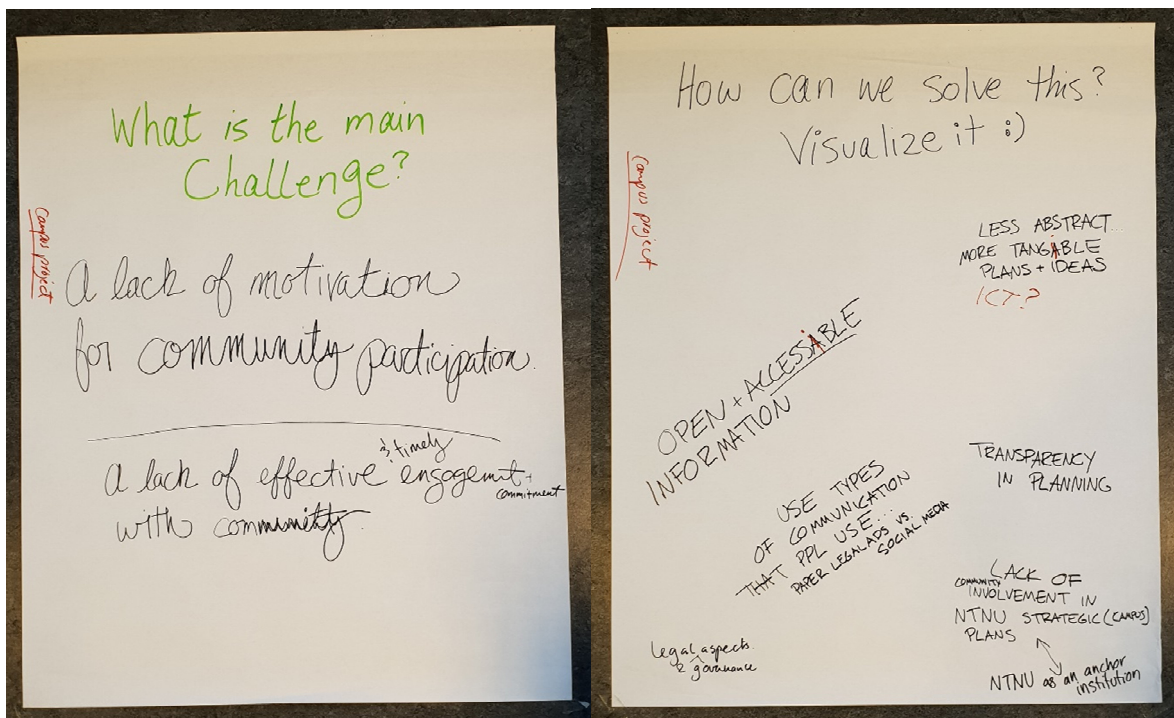 What is the main
Challenge?
Campus project
A lack of motivation
for community participation.
A lack of effective & timely engagemnt + commitment
with community.
How can we solve this?
Visualize it :)
Campus project
LESS ABSTRACT...
MORE TANGIBLE
PLANS + IDEAS
ICT?
OPEN + ACCESSIBLE
INFORMATION
TRANSPARENCY
IN PLANNING
USE TYPES
OF COMMUNICATION
THAT PPL USE...
PAPER LEGAL ADS VS.
SOCIAL MEDIA
LACK OF
COMMUNITY INVOLVEMENT IN
NTNU STRATEGIC (CAMPUS)
PLANS
NTNU as an anchor
institution
legal aspects
& governance